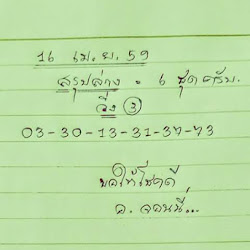 16 เม.ย. 59
สรุปล่าง : 6 ชุดครับ
วิ่ง 3
03-30-13-31-37-73
ขอให้โชคดี
อ. จอนนี่...